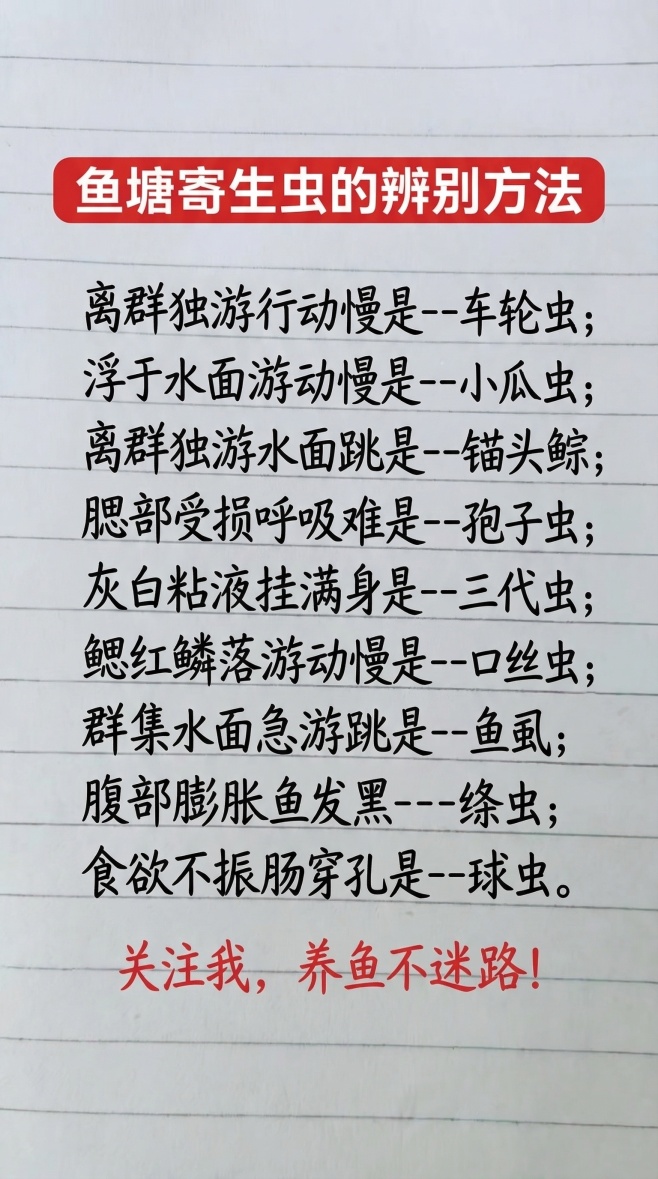 鱼塘寄生虫的辨别方法
离群独游行动慢是--车轮虫；
浮于水面游动慢是--小瓜虫；
离群独游水面跳是--锚头鲩；
腮部受损呼吸难是--孢子虫；
灰白粘液挂满身是--三代虫；
鳃红鳞落游动慢是--口丝虫；
群集水面急游跳是--鱼虱；
腹部膨胀鱼发黑---绦虫；
食欲不振肠穿孔是--球虫。
关注我，养鱼不迷路！